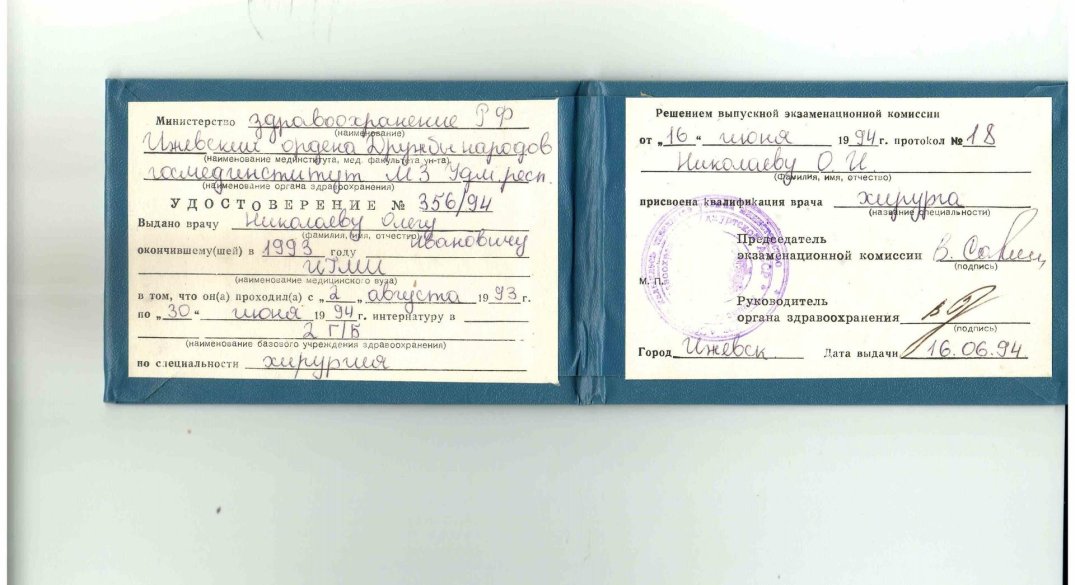 Министерство здравоохранение РФ
(наименование)
Ижевский ордена Дружбы народов
(наименование мединститута, мед. факультета ун-та)
госмединститут МЗ Удм. респ.
(наименование органа здравоохранения)
УДОСТОВЕРЕНИЕ № 356/94
Выдано врачу Николаеву Олегу
(фамилия, имя, отчество) Ивановичу
окончившему(шей) в 1993 году
ИГМИ
(наименование медицинского вуза)
в том, что он(а) проходил(а) с „2„ августа 1993 г.
по „30“ июня 1994 г. интернатуру в
2 Г/Б
(наименование базового учреждения здравоохранения)
по специальности хирургия
Решением выпускной экзаменационной комиссии
от „16“ июня 1994 г. протокол № 18
Николаеву О. И.
(фамилия, имя, отчество)
присвоена квалификация врача хирурга
(название специальности)
Председатель
экзаменационной комиссии
(подпись)
М. П.
Руководитель
органа здравоохранения
(подпись)
Город Ижевск Дата выдачи 16.06.94